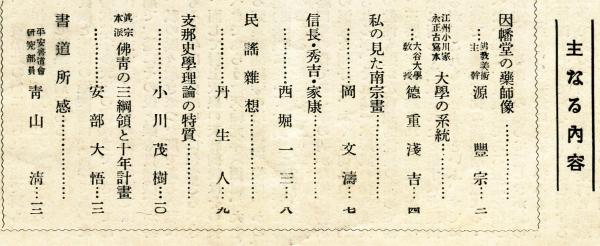 主なる內容
因幡堂の藥師像…………
佛敎美術主幹 源豐宗…二
江州小川家永正古寫本 大學の系統……
大谷大學敎授 德重淺吉…四
私の見た南宗畫…………
……岡文濤…七
信長・秀吉・家康…………
……西堀一三…八
民謠雜想…………
……丹生人…九
支那史學理論の特質……
……小川茂樹…一〇
眞宗本派 佛靑の三綱領と十年計畫
……安部大悟…一二
書道所感…………
平安書道會硏究部員 靑山淸…一三